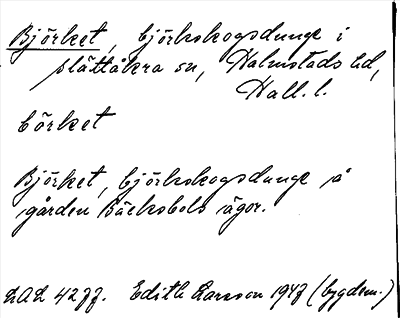 Björket, björkskogsdunge i
slättåkra sn, Halmstads hd,
Hall. l.
börket
Björket, björkskogsdunge å
gården Bäcksbols ägor.
LAL 4277. Edith Larsson 1947 (bygdem.)